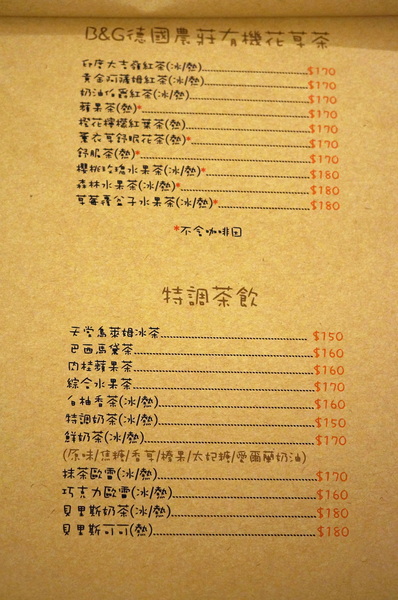 B&G德國農莊有機花草茶
印度大吉嶺紅茶(冰/熱)........$170
黃金阿薩姆紅茶(冰/熱)........$170
奶油伯爵紅茶(冰/熱)........$170
蘋果茶(熱)*........$170
橙花檸檬紅葉茶(熱)........$170
薰衣草舒眠花茶(熱)*........$170
舒眠茶(熱)*........$170
櫻桃玫瑰水果茶(冰/熱)*........$180
森林水果茶(冰/熱)*........$180
草莓覆盆子水果茶(冰/熱)*........$180
*不含咖啡因
特調茶飲
天堂烏萊姆冰茶........$150
巴西馬黛茶........$160
肉桂蘋果茶........$160
綜合水果茶........$170
白柚香茶(冰/熱)........$160
特調奶茶(冰/熱)........$150
鮮奶茶(冰/熱)........$170
(原味/焦糖/香草/榛果/太妃糖/愛爾蘭奶油)
抹茶歐蕾(冰/熱)........$170
巧克力歐蕾(冰/熱)........$160
貝里斯奶茶(冰/熱)........$180
貝里斯可可(熱)........$180